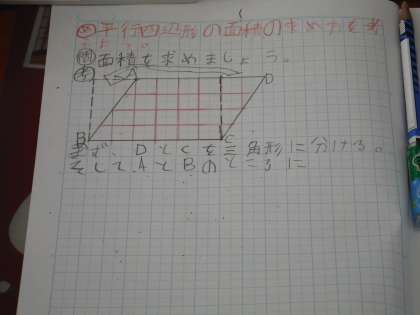 め 平行四辺形の面積の求め方を考
えよう。
問 面積を求めましょう。
考
A
D
B
C
まず、DとCを三角形に分ける。
そしてAとBのところに